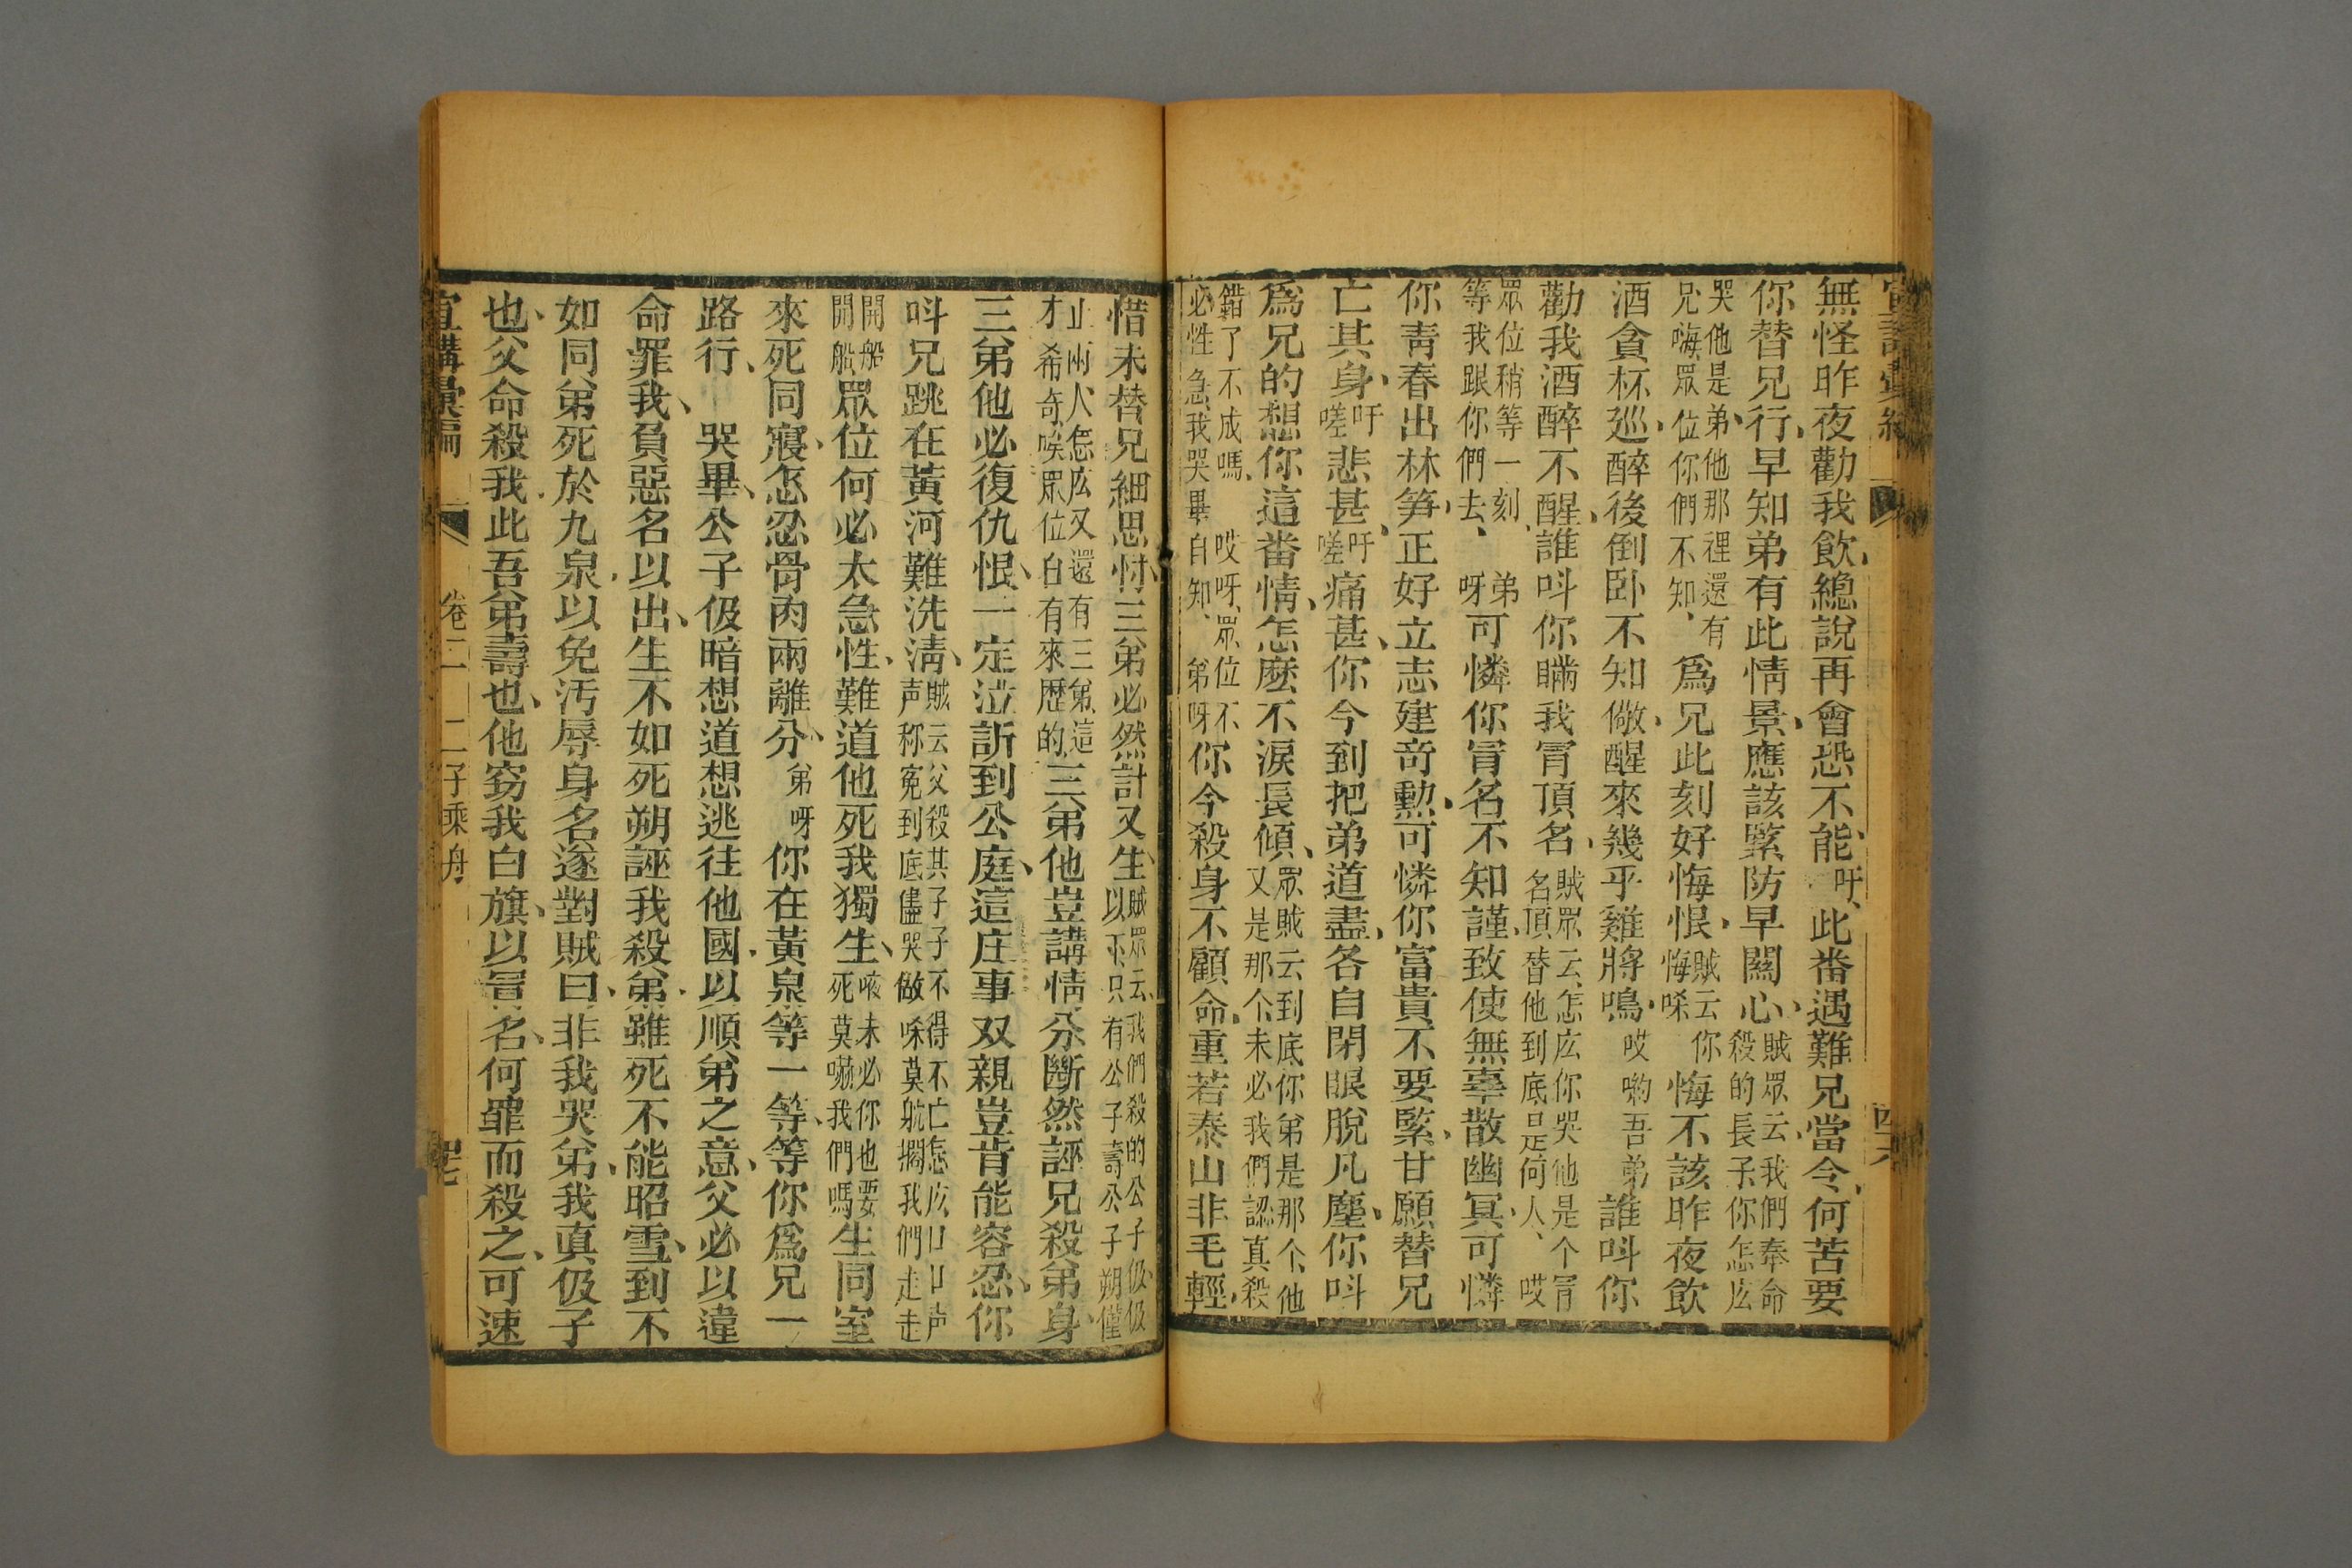 宣講彙編
四六
無怪昨夜勸我飲、緫說再會恐不能、吁、此番遇難兄當令、何苦要
你替兄行、早知弟有此情景、應該緊防早關心、賊眾云、我們奉命殺的長子你怎庅
哭他是弟、他那裡還有兄、嗨、眾位你們不知、爲兄此刻好悔恨、賊云你悔唋悔不該昨夜飲
酒貪杯廵、醉後倒卧不知儆、醒來幾乎雞將鳴、哎喲吾弟誰呌你
勸我酒醉不醒、誰呌你瞞我冐頂名、賊眾云、怎庅你哭他是个冐名頂替他到底是何人、哎
眾位稍等一刻、等我跟你們去、弟呀可憐你冐名不知謹、致使無辜散幽冥、可憐
你靑春出林笋、正好立志建竒勲、可憐你富貴不要緊、甘願替兄
亡其身、吁嗟悲甚、吁嗟痛甚、你今到把弟道盡、各自閉眼脫凡塵、你呌
爲兄的想你這番情、怎麽不淚長傾、眾賊云到底你弟是那个、他又是那个、未必我們認真殺
錯了不成嗎、哎呀、眾位不必性急、我哭畢自知、弟呀你今殺身不顧命、重若泰山非毛輕、
惜未替兄細思忖、三弟必然計又生、賊眾云、我們殺的公子伋伋以下、只有公子壽公子朔僅
止兩人、怎庅又還有三弟、這才希奇、唉眾位自有來歷的、三弟他豈講情分、斷然誣兄殺弟身、
三弟他必復仇恨、一定泣訢到公庭、這庄事双親豈肯能容忍、你
呌兄跳在黄河難洗淸、賊云父殺其子子不得不亡怎庅口口声声称寃到底儘哭做唋莫躭擱我們走走
開船開船、眾位何必太急性、難道他死我獨生、㖡未必你也要死莫嚇我們嗎生同室
來死同寢、怎忍骨肉兩離分、弟呀你在黃泉等一等、等你爲兄一
路行、哭畢、公子伋暗想道想逃往他國、以順弟之意、父必以違
命罪我、負惡名以出、生不如死、朔誣我殺弟、雖死不能昭雪、到不
如同弟死於九泉、以免污辱身名、遂對賊曰、非我哭弟、我真伋子
也、父命殺我、此吾弟壽也、他窃我白旗、以冐名、何罪而殺之、可速
宣講彙編
卷二
二子乘舟